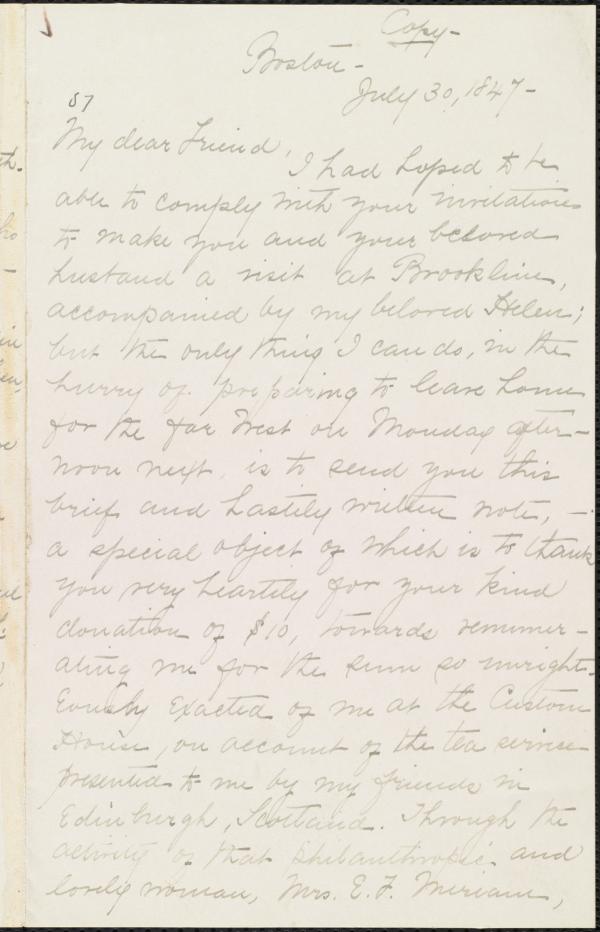 Copy-
Boston-
July 30, 1847-
57
My dear Friend,
I had hoped to be
able to comply with your invitation
to make you and your beloved
husband a visit at Brookline,
accompanied by my beloved Helen;
but the only thing I can do, in the
hurry of preparing to leave home
for the far West on Monday after-
noon next, is to send you this
brief and hastily written note, -
a special object of which is to thank
you very heartily for your kind
donation of $10, towards remuner-
ating me for the sum so unright-
eously exacted of me at the Custom
House, on account of the tea service
presented to me by my friends in
Edinburgh, Scotland. Through the
activity of that philanthropic and
lovely woman, Mrs. E. F. Meriam,